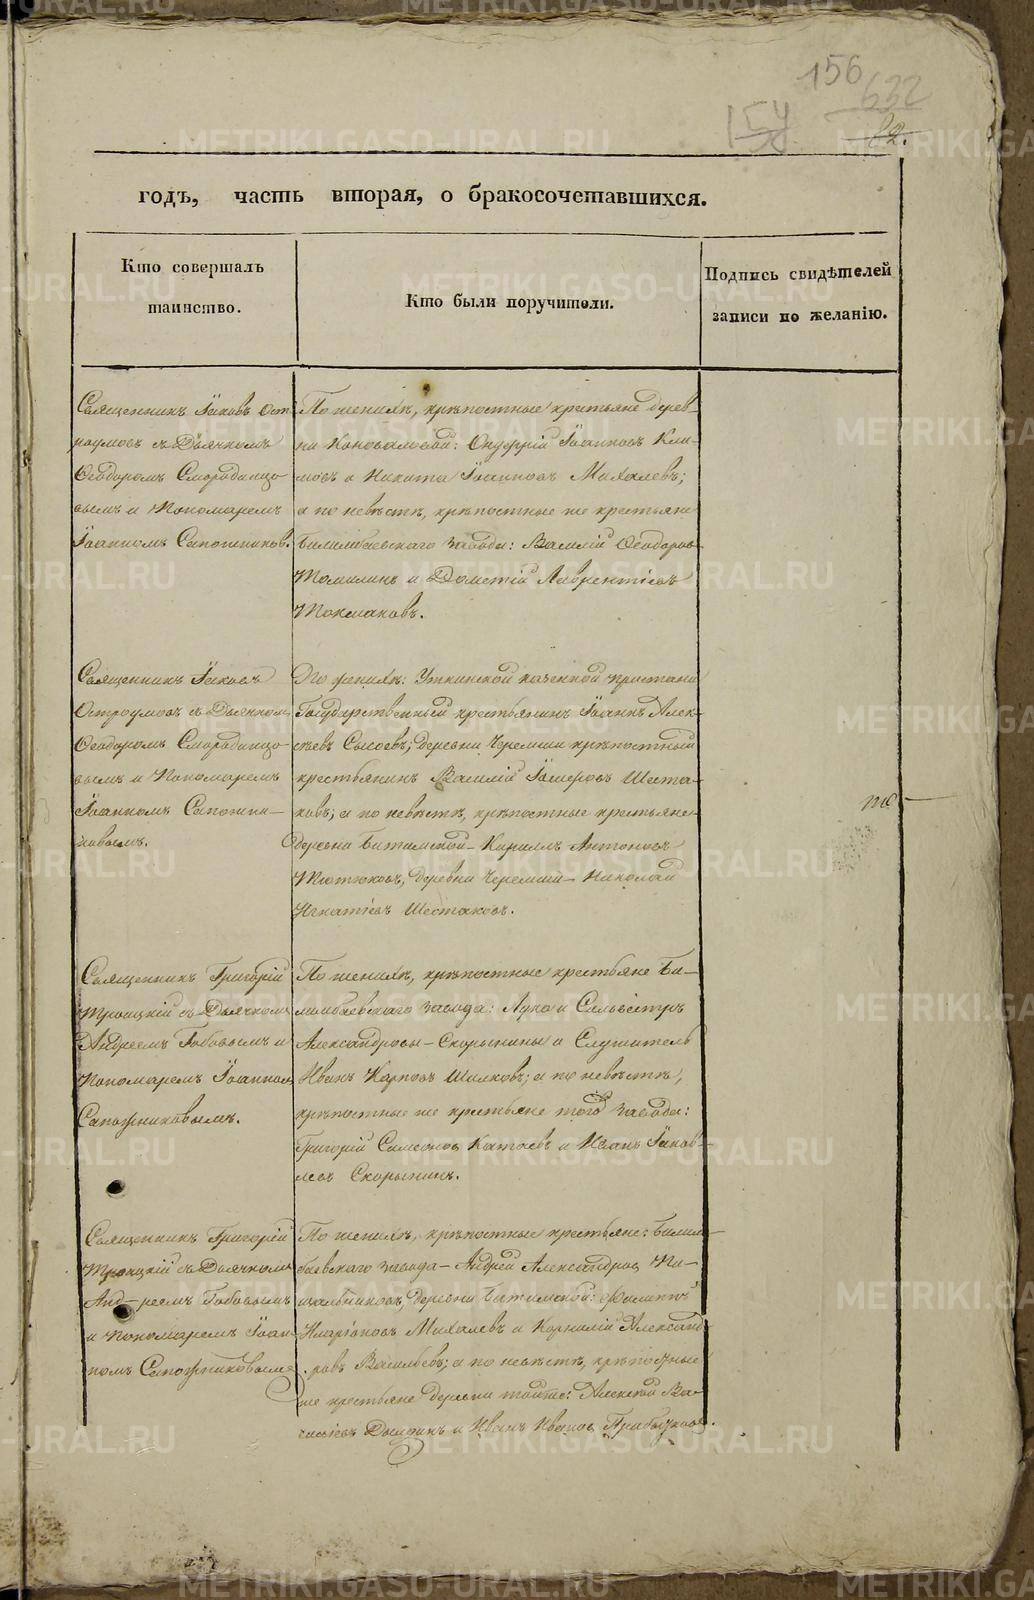 156
632
154
22.
годъ, часть вторая, о бракосочетавшихся.
Кто совершалъ
таинство.
Кто были поручители.
Подпись свидѣтелей
записи по желанію.
Священникъ Іаковъ Ост
роумовъ съ Дьячкомъ
Ѳеодоромъ Смородинцо
вымъ и Пономаремъ
Іоанномъ Сапожников.
По женихѣ, крѣпостные крестьяне дерев-
ни Коноваловой: Онуфрій Іоанновъ Кли-
мовъ и Никита Іоанновъ Михалевъ;
а по невѣстѣ, крѣпостные же крестьяне
Билимбаевскаго завода: Василій Ѳеодоров
Томилинъ и Дометій Лаврентіевъ
Токмаковъ.
Священникъ Іаковъ
Остроумовъ съ Дьячком
Ѳеодоромъ Смородинцо-
вымъ и Пономаремъ
Іоанномъ Сапожни-
ковымъ.
По женихѣ: Уткинской казенной пристани
Государственный крестьянинъ Іоаннъ Алек-
сѣевъ Сысоевъ; деревни Черемши крѣпостный
крестьянинъ Василій Шеста-
ковъ; а по невѣстѣ, крѣпостные крестьяне
деревни Битимской - Кириллъ Антоновъ
Тютюковъ, деревни Черемши - Николай
Игнатіевъ Шестаковъ.
Священникъ Григорій
Троицкій съ Дьячкомъ
Андреемъ Бобовымъ и
Пономаремъ Іоанном
Сапожниковымъ.
По женихѣ, крѣпостные крестьяне Би-
лимбаевскаго завода: Лука и Сильвестръ
Александровы - Скорынины и Служитель
Иванъ Карповъ Шилковъ; а по невѣстѣ,
крѣпостные же крестьяне того завода:
Григорій Симеонов Катаевъ и Иванъ Іаков
левъ Скорынинъ.
Священникъ Григорій
Троицкій съ Дьячкомъ
Анд-реемъ Бобовымъ
и Пономаремъ Іоан-
номъ Сапожниковымъ
По женихѣ, крѣпостные крестьяне: Билим-
баевскаго завода - Андрей Александров Пи-
щальниковъ, деревни Битимской: Филиппъ
Иларіоновъ Михалевъ и Корнилій Александ-
ровъ Васильевъ; а по невѣстѣ, крѣпостные
же крестьяне деревни тойже: Алексей Ва-
силіевъ и Иванъ Иванов
METRIKI.GASO-URAL.RU